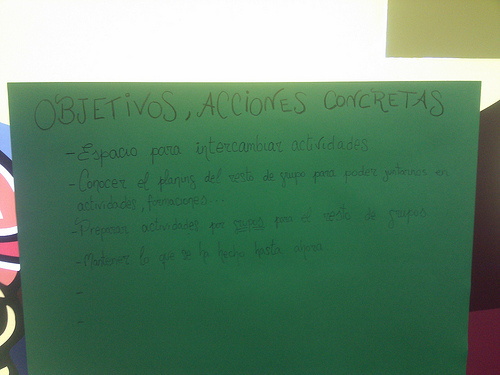 OBJETIVOS, ACCIONES CONCRETAS
- Espacio para intercambiar actividades
- Conocer el planing del resto de grupo para poder juntarnos en
actividades, formaciones...
- Preparar actividades por grupos para el resto de grupos
- Mantener lo que se ha hecho hasta ahora
-
-